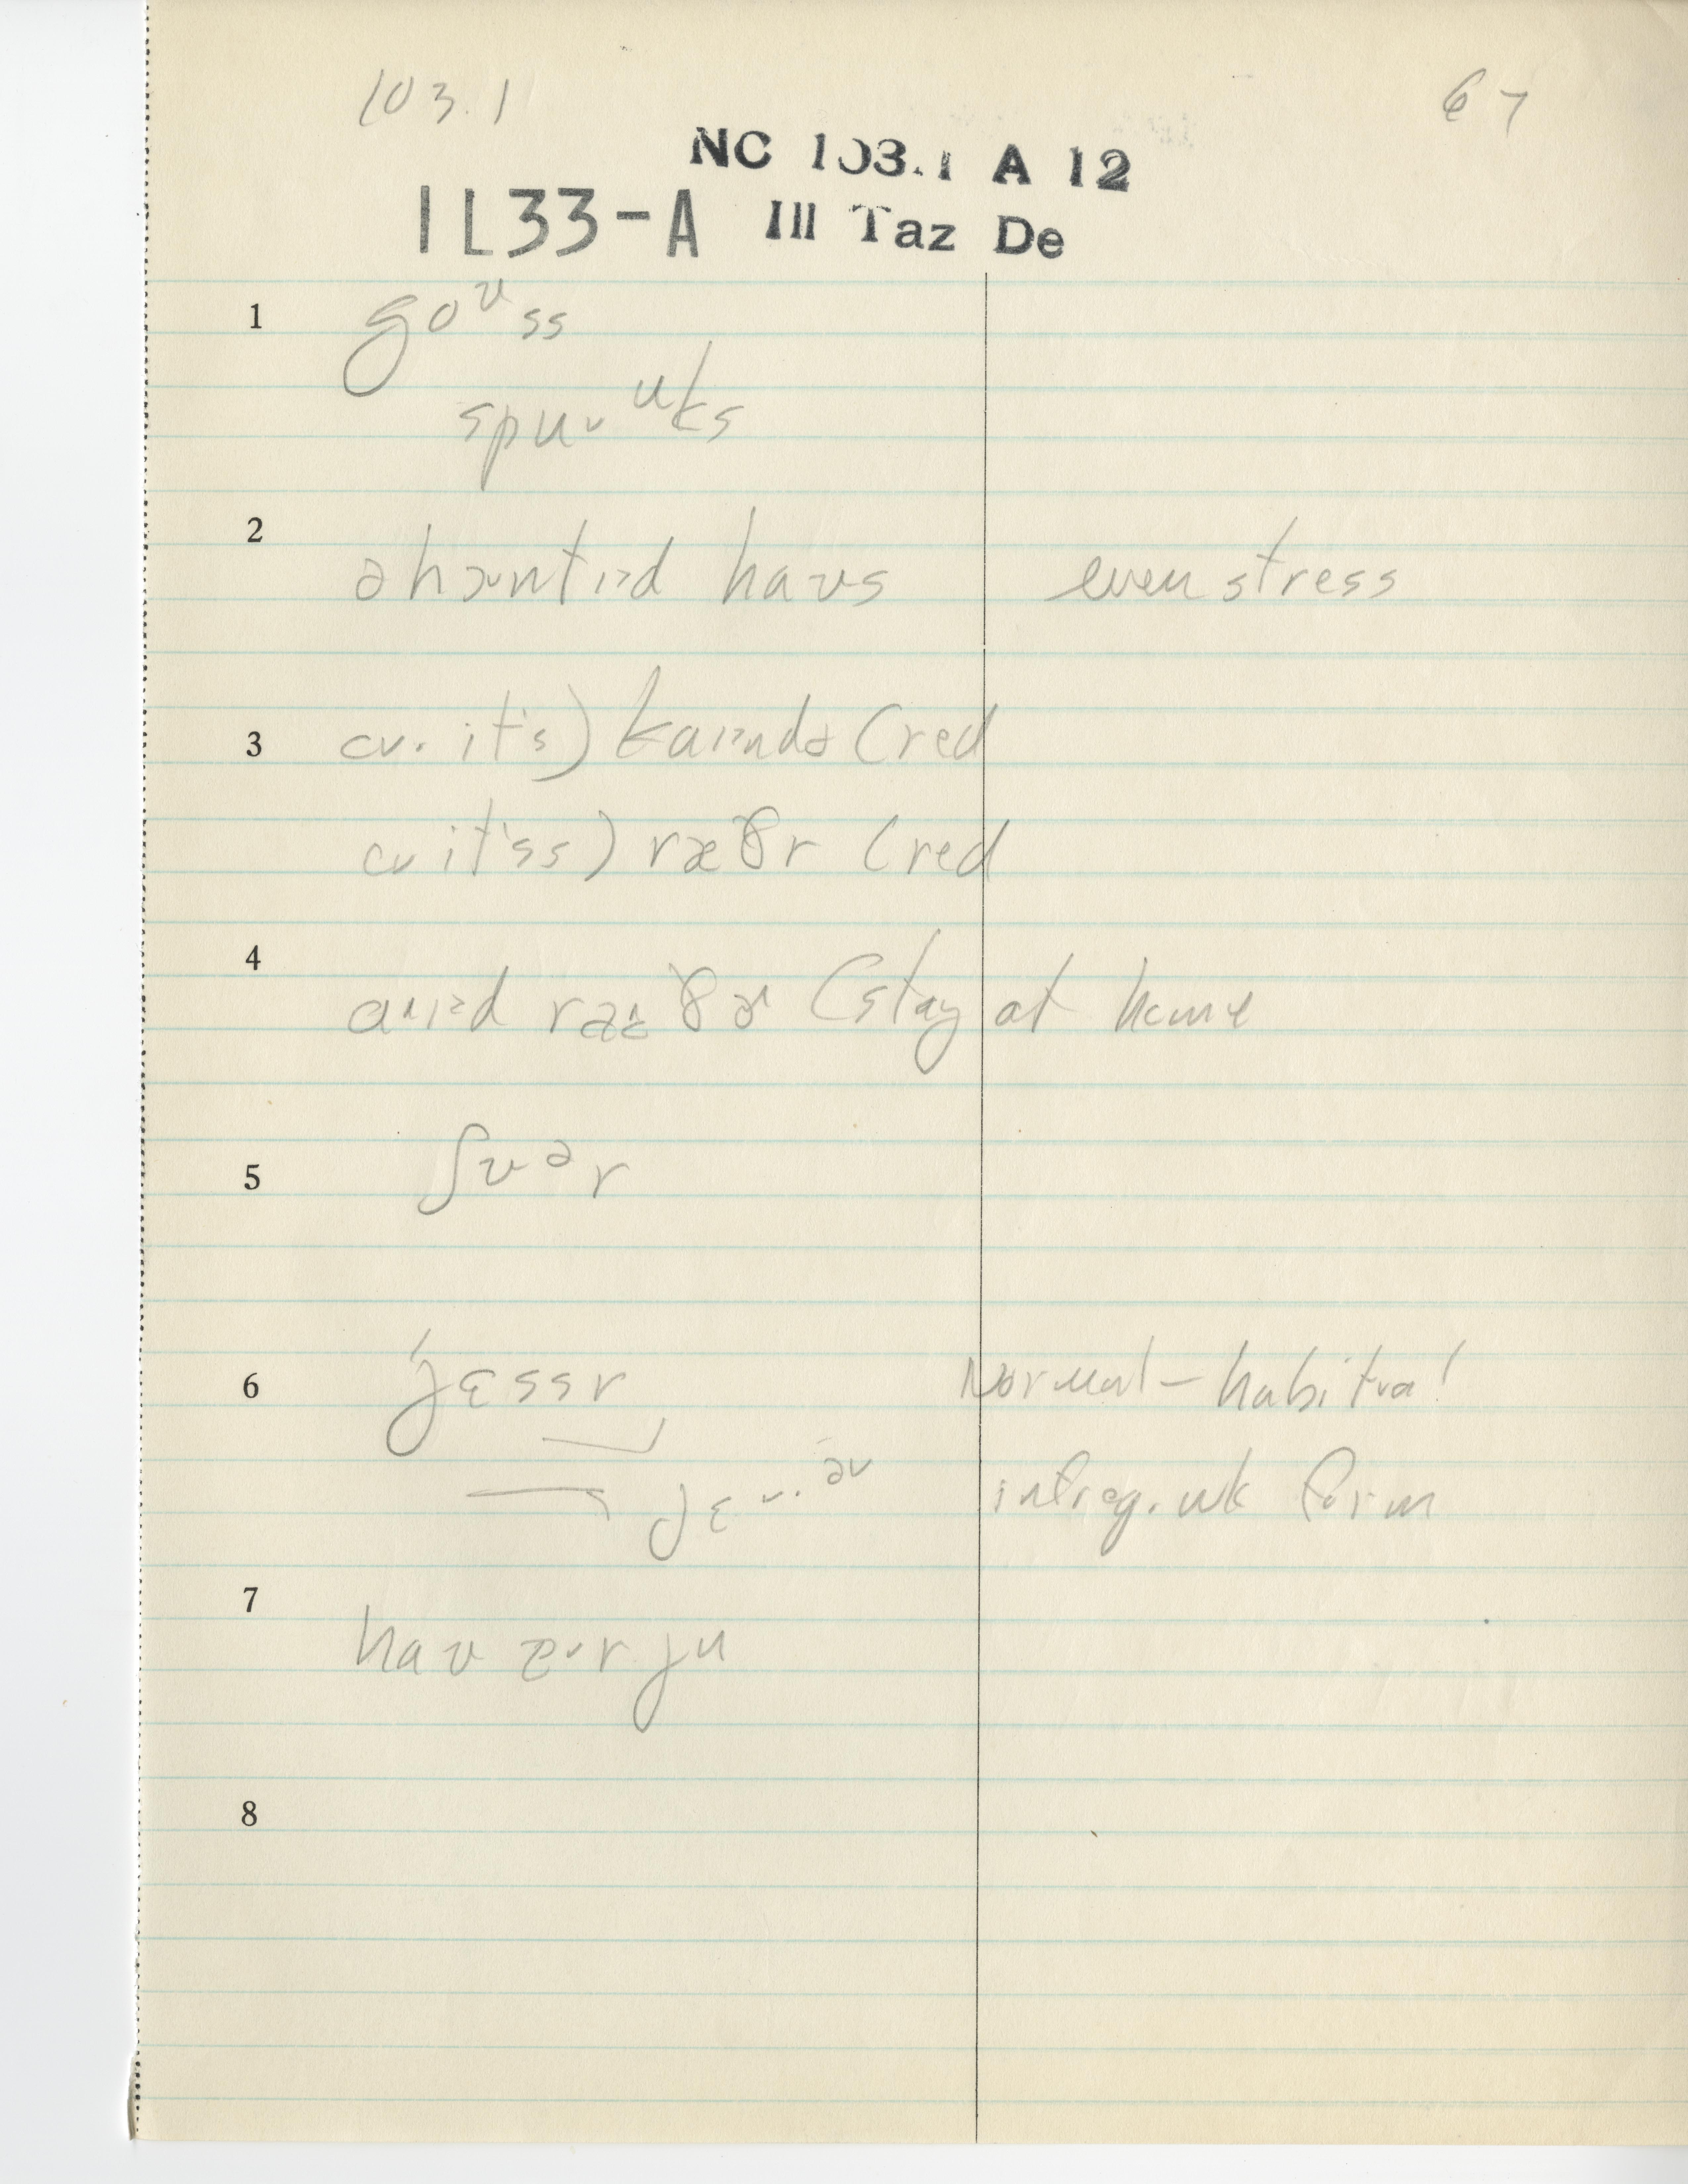 103.1 67
NC 103.1 A 12
IL33-A Ill Taz De
1 goʊss
spuˬᵘks
2 əhɔˬntɪəd haʊs even stress
3 cv. it's) kaɪəndə (red
cv it'ss) ræðr (red
4 aˈɪəd ræɛðɚ (stay at home
5 ʃʊər
6 'jɛssr Normal – habitual
jɛˬ.əˬ infreq. wk form
7 haʊ ɚr ju
8